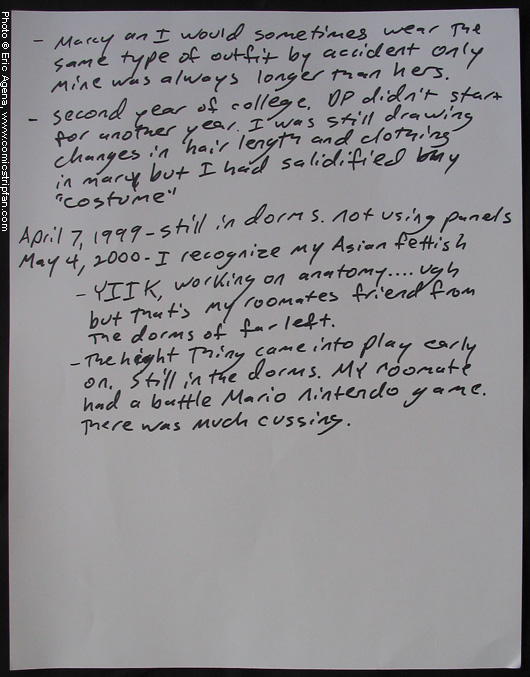 - Marcy an I would sometimes wear The
same type of outfit by accident only
mine was always longer than hers.
- second year of college. OP didn't start
for another year. I was still drawing
changes in hair length and clothing
in marcy but I had salidified my
"costume"
April 7, 1999 - still in dorms. not using panels
May 4, 2000 - I recognize my Asian fettish
- YIIK, working on anatomy.... ugh
but that's my roomates friend from
The dorms of far left.
- The height Thing came into play early
on. Still in the dorms. My roomate
had a battle Mario nintendo game.
There was much cussing.
Photo © Eric Agena, www.comicstripfan.com